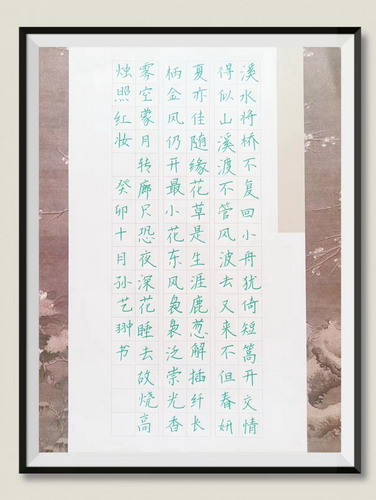 溪水将桥不复回小舟犹倚短篙开交情
得似山溪渡不管风波去又来不但春妍
夏亦佳随缘花草是生涯鹿葱解插纤长
柄金风仍开最小花东风袅袅泛崇光香
雾空蒙月转廊只恐夜深花睡去故烧高
烛照红妆 癸卯十月孙艺书